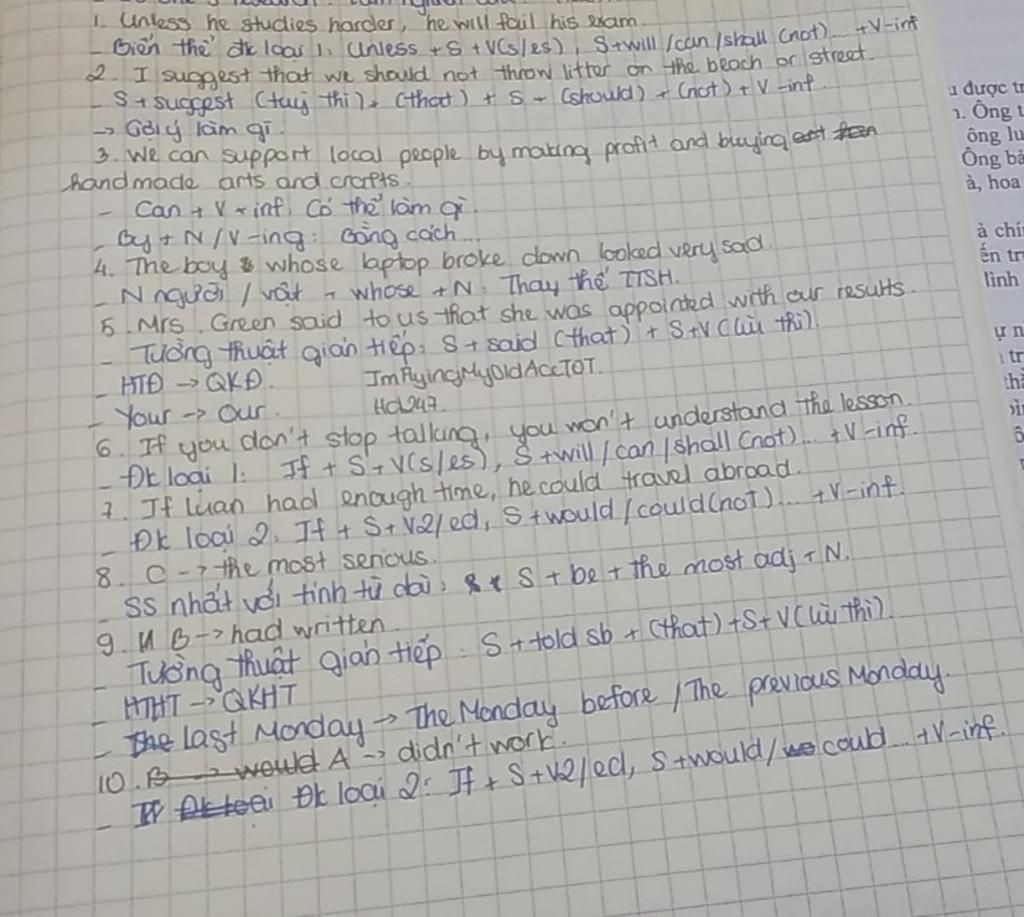 1. Unless he studies harder, he will fail his exam.
- Biến thể đk loại 1: Unless + S + V(s/es), S + will / can / shall (not)... + V-inf
2. I suggest that we should not throw litter on the beach or street.
- S + suggest (tuỳ thì) + (that) + S + (should) + (not) + V-inf.
→ Gợi ý làm gì.
3. We can support local people by making profit and buying
handmade arts and crafts.
- Can + V-inf: Có thể làm gì.
- By + N / V-ing: Bằng cách...
4. The boy whose laptop broke down looked very sad.
- N người / vật + whose + N: Thay thế TTSH.
5. Mrs. Green said to us that she was appointed with our results.
- Tường thuật gián tiếp: S + said (that) + S + V (lùi thì).
- HTĐ → QKĐ. ImFlyingMyOldAccTOT.
- Your → Our. Hcl247.
6. If you don't stop talking, you won't understand the lesson.
- Đk loại 1: If + S + V(s/es), S + will / can / shall (not)... + V-inf.
7. If Luan had enough time, he could travel abroad.
- Đk loại 2: If + S + V2/ed, S + would / could (not)... + V-inf.
8. C → the most serious.
- SS nhất với tính từ dài: S + be + the most adj + N.
9. B → had written.
- Tường thuật gián tiếp: S + told sb + (that) + S + V (lùi thì).
- HTHT → QKHT
- Last Monday → The Monday before / The previous Monday.
10. A → didn't work.
- Đk loại 2: If + S + V2/ed, S + would / could... + V-inf.
được
1. Ông
ông
Ông
à, hoa
à
ến
linh